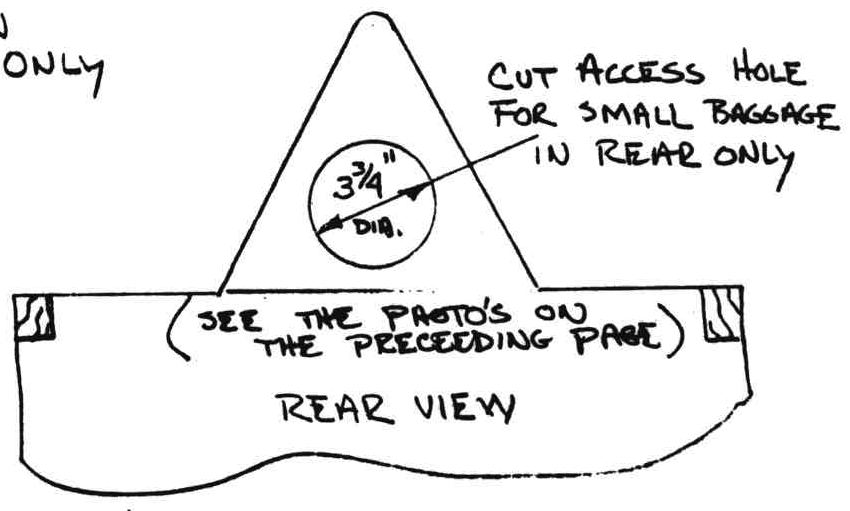 ONLY
CUT ACCESS HOLE
FOR SMALL BAGGAGE
IN REAR ONLY
3 3/4"
DIA.
(SEE THE PHOTO'S ON
THE PRECEEDING PAGE)
REAR VIEW